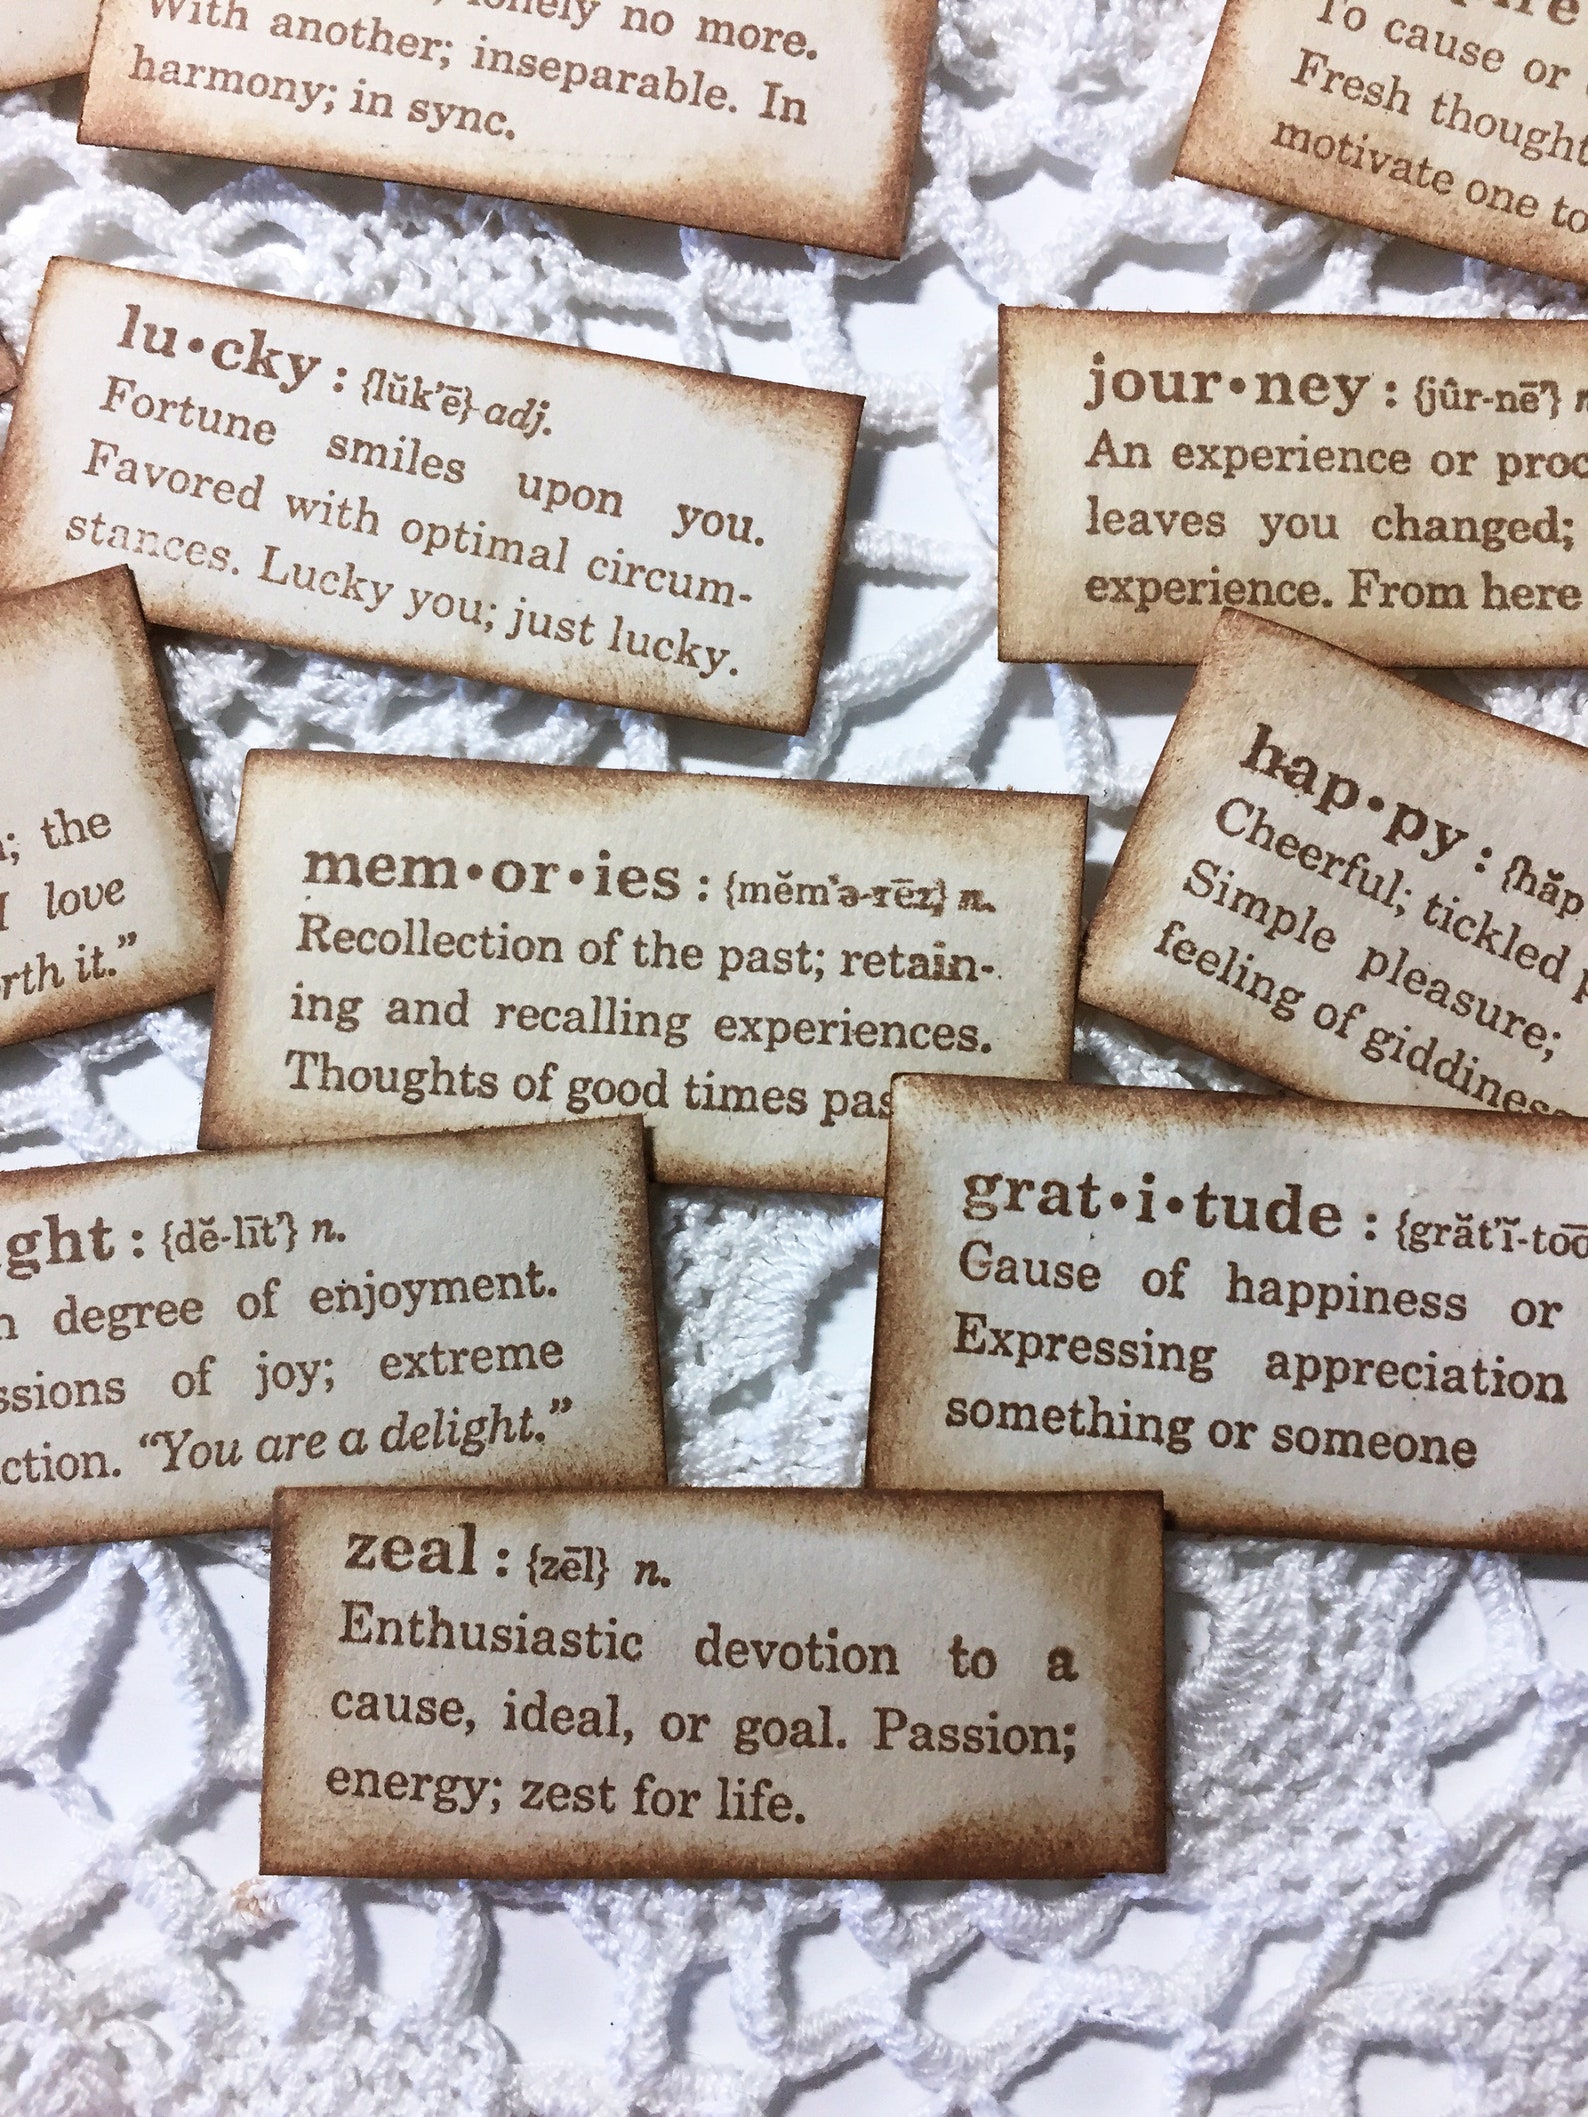 lonely no more.
With another; inseparable. In
harmony; in sync.
To cause or
Fresh thought
motivate one to
lu•cky : {lŭk’ē} adj.
Fortune smiles upon you.
Favored with optimal circum-
stances. Lucky you; just lucky.
jour•ney : {jûr-nē’}
An experience or
leaves you changed;
experience. From here
hap•py : {hăp
Cheerful; tickled
Simple pleasure;
feeling of giddiness
the
I love
it.”
mem•or•ies : {mĕm’ə-rēz} n.
Recollection of the past; retain-
ing and recalling experiences.
Thoughts of good times
ght : {dĕ-līt’} n.
degree of enjoyment.
ssions of joy; extreme
ction. “You are a delight.”
grat•i•tude : {grăt’ĭ-too
Cause of happiness or
Expressing appreciation
something or someone
zeal : {zēl} n.
Enthusiastic devotion to a
cause, ideal, or goal. Passion;
energy; zest for life.